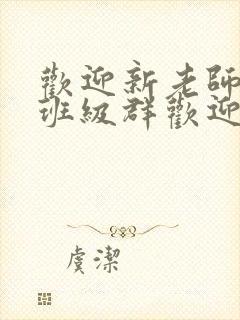 歡迎新老師
班級群歡迎
虞潔